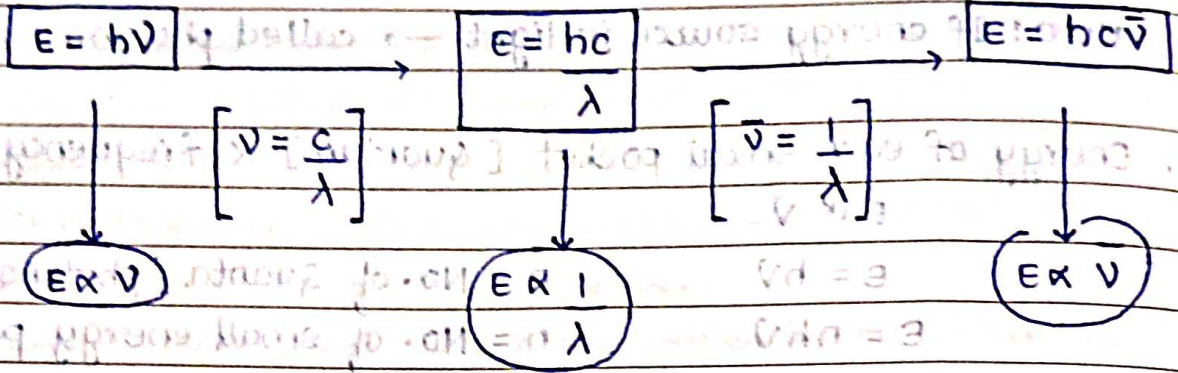 E = hν → E = hc/λ → E = hcν̄
[ν = c/λ] [ν̄ = 1/λ]
E ∝ ν E ∝ 1/λ E ∝ ν̄